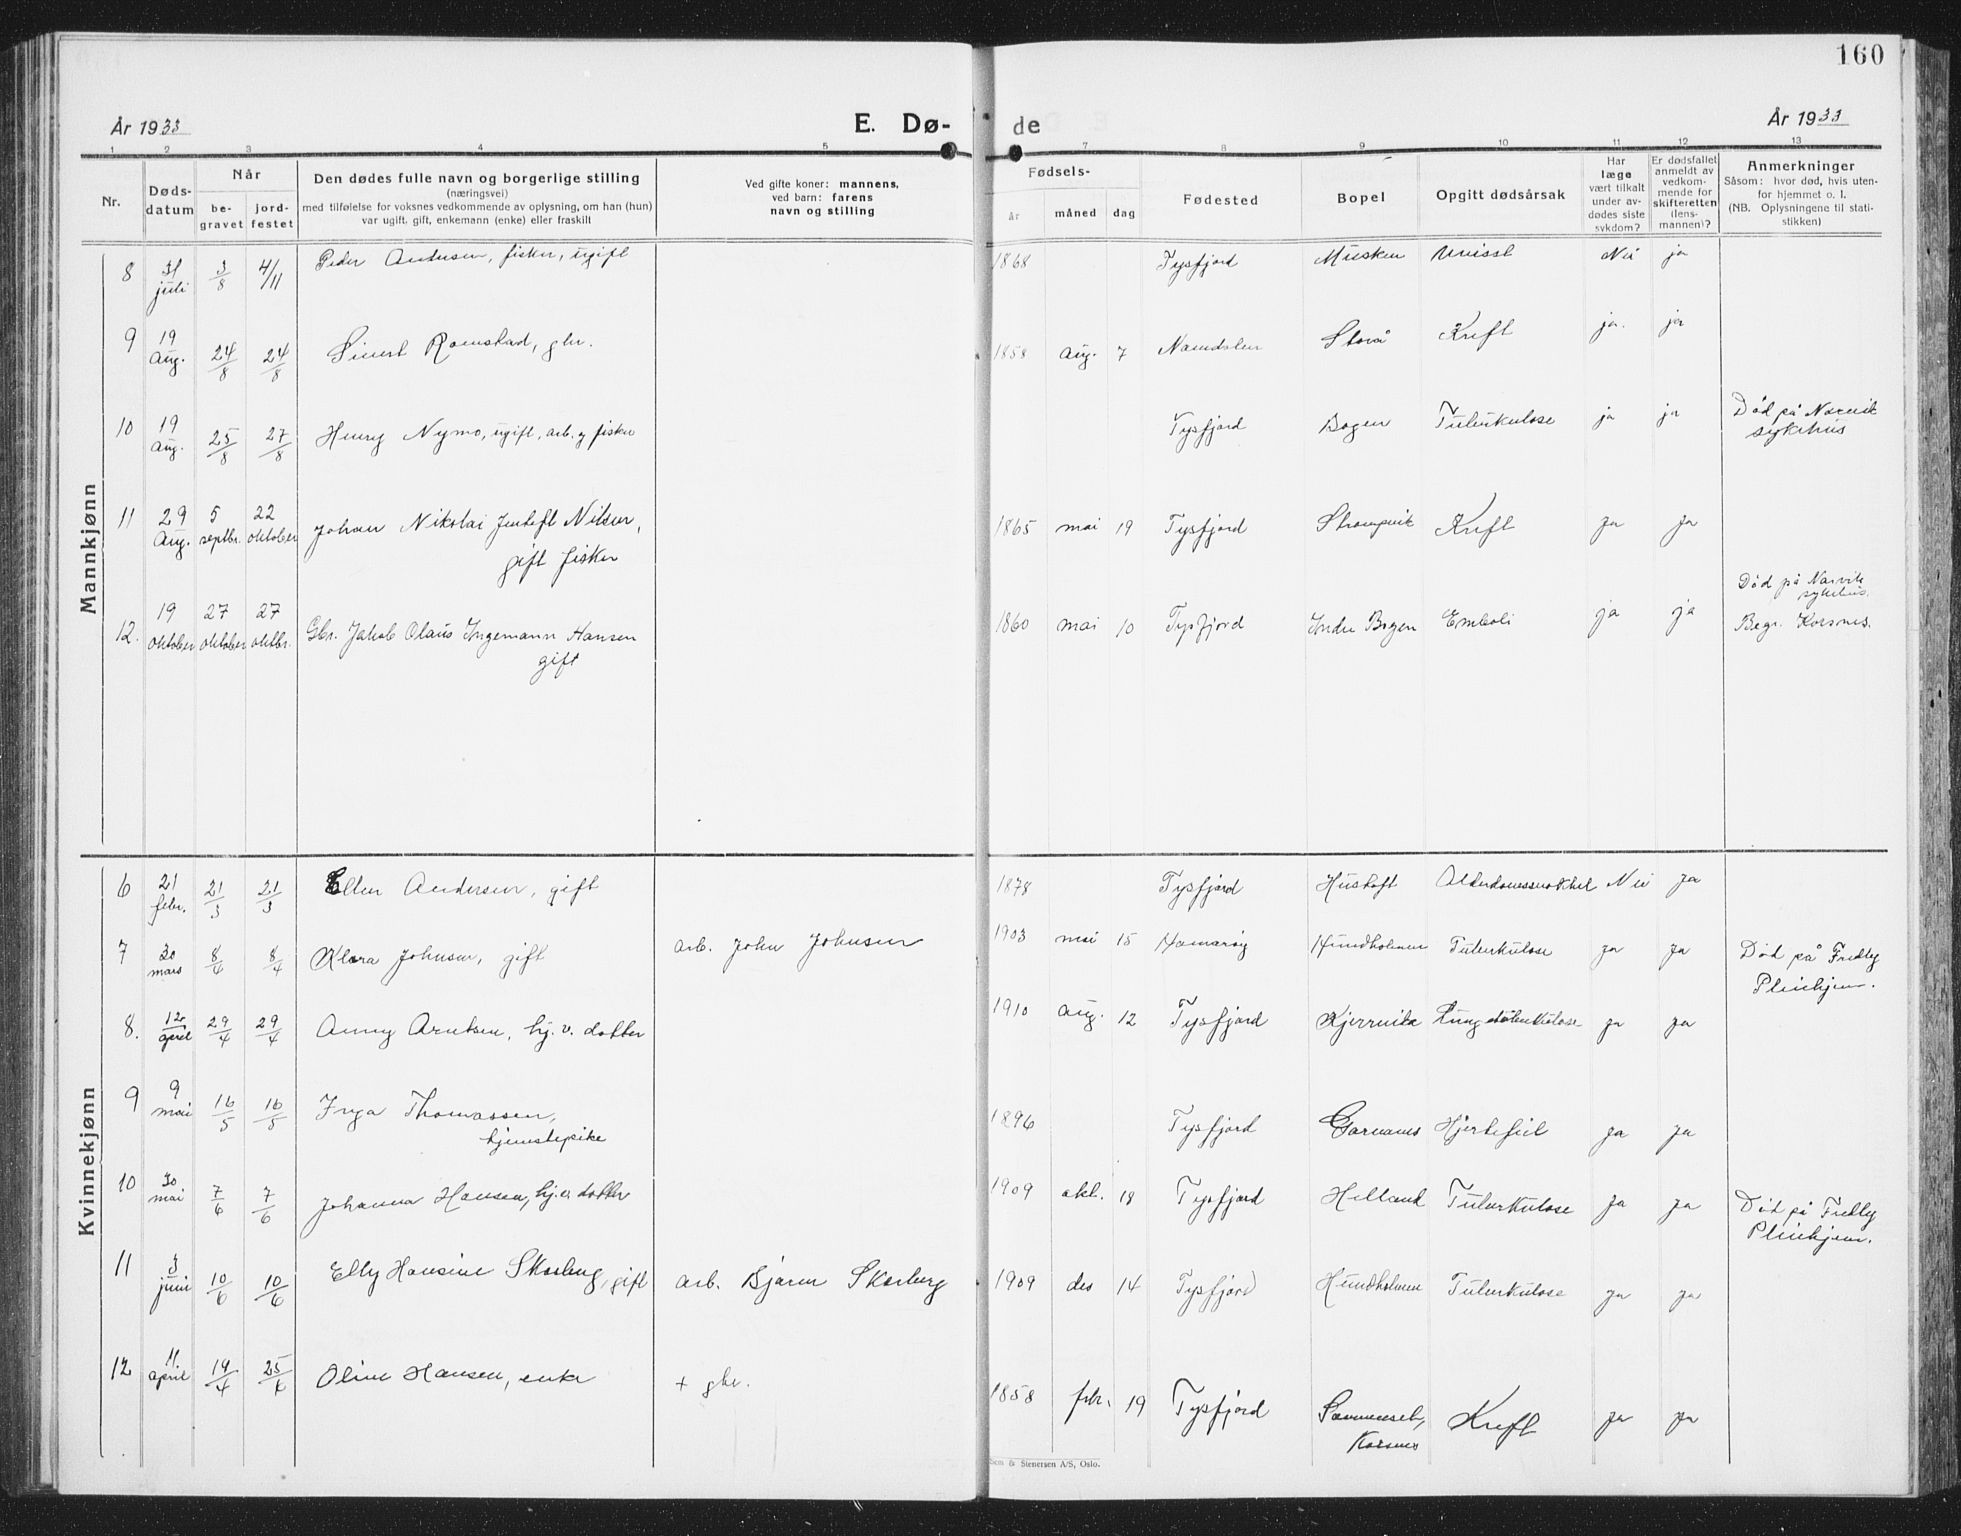 160
År 1933 E. Dø- de År 1933
1 2 3 4 5 7 8 9 10 11 12 13
Nr.
Døds-
datum
Når
be-
gravet
jord-
festet
Den dødes fulle navn og borgerlige stilling
(næringsvei)
med tilføielse for voksnes vedkommende av oplysning, om han (hun)
var ugift, gift, enkemann (enke) eller fraskilt
Ved gifte koner: mannens,
ved barn: farens
navn og stilling
Fødsels-
år måned dag
Fødested
Bopel
Opgitt dødsårsak
Har
læge
vært tilkalt
under av-
dødes siste
sykdom?
Er dødsfallet
anmeldt av
vedkom-
mende for
skifteretten
(lens-
mannen)?
Anmerkninger
Såsom: hvor død, hvis uten-
for hjemmet o. l.
(NB. Oplysningene til stati-
stikken)
Mannkjønn
8 31 juli 3/8 4/11 Peder Andersen, fisker, ugift 1868 Tysfjord Musken Uvisst Nei ja
9 19 Aug. 24/8 24/8 Sivert Romstad, gbr. 1858 Aug. 7 Namdalen Storå Kreft ja. ja
10 19 Aug. 25/8 27/8 Henry Nymo, ugift, arb. og fisker Tysfjord Bogen Tuberkulose ja ja Død på Narvik
sykehus
11 29 Aug. 5 septbr. 22 oktober Johan Nikolai Jentoft Nilsen,
gift fisker 1865 mai 19 Tysfjord Kreft ja ja
12. 19 oktober 27 oktober 27 oktbr. Gbr. Jakob Olaus Ingemann Hansen
gift 1860 mai 10 Tysfjord Indre Bogen Emboli ja ja Død på Narvik
sykehus.
Begr. Korsnes.
Kvinnekjønn
6 21 febr. 21/3 21/3 Ellen Andersen, gift 1878 Tysfjord Hustoft Nei ja
7 30 mars 8/4 8/4 Klara Johnsen, gift arb. John Johnsen 1903 mai 15 Hamarøy Hundholmen Tuberkulose ja ja Død på Fredly
Pleiehjem.
8. 12 april 29/4 29/4 Anny Arntsen, hj. v. datter 1910 Aug. 12 Tysfjord Kjerrvika Lungetuberkulose ja ja
9 9 mai 16/5 16/5 Inga Thomassen,
hjemstepike 1896 Tysfjord Hjertefeil ja ja
10 30 mai 7/6 7/6 Johanna Hansen, hj. v. datter 1909 okt. 18 Tysfjord Helland Tuberkulose ja ja Død på Fredly
Pleiehjem.
11 3 juni 10/6 10/6 Elly Hansine Skarberg, gift arb. Bjarne Skarberg 1909 des 14 Tysfjord Hundholmen Tuberkulose ja ja
12 11 april 19/4 25/6 Oline Hansen, enke + gbr. 1858 febr. 19 Tysfjord
Korsnes Kreft ja ja
Sem & Stenersen A/S, Oslo.